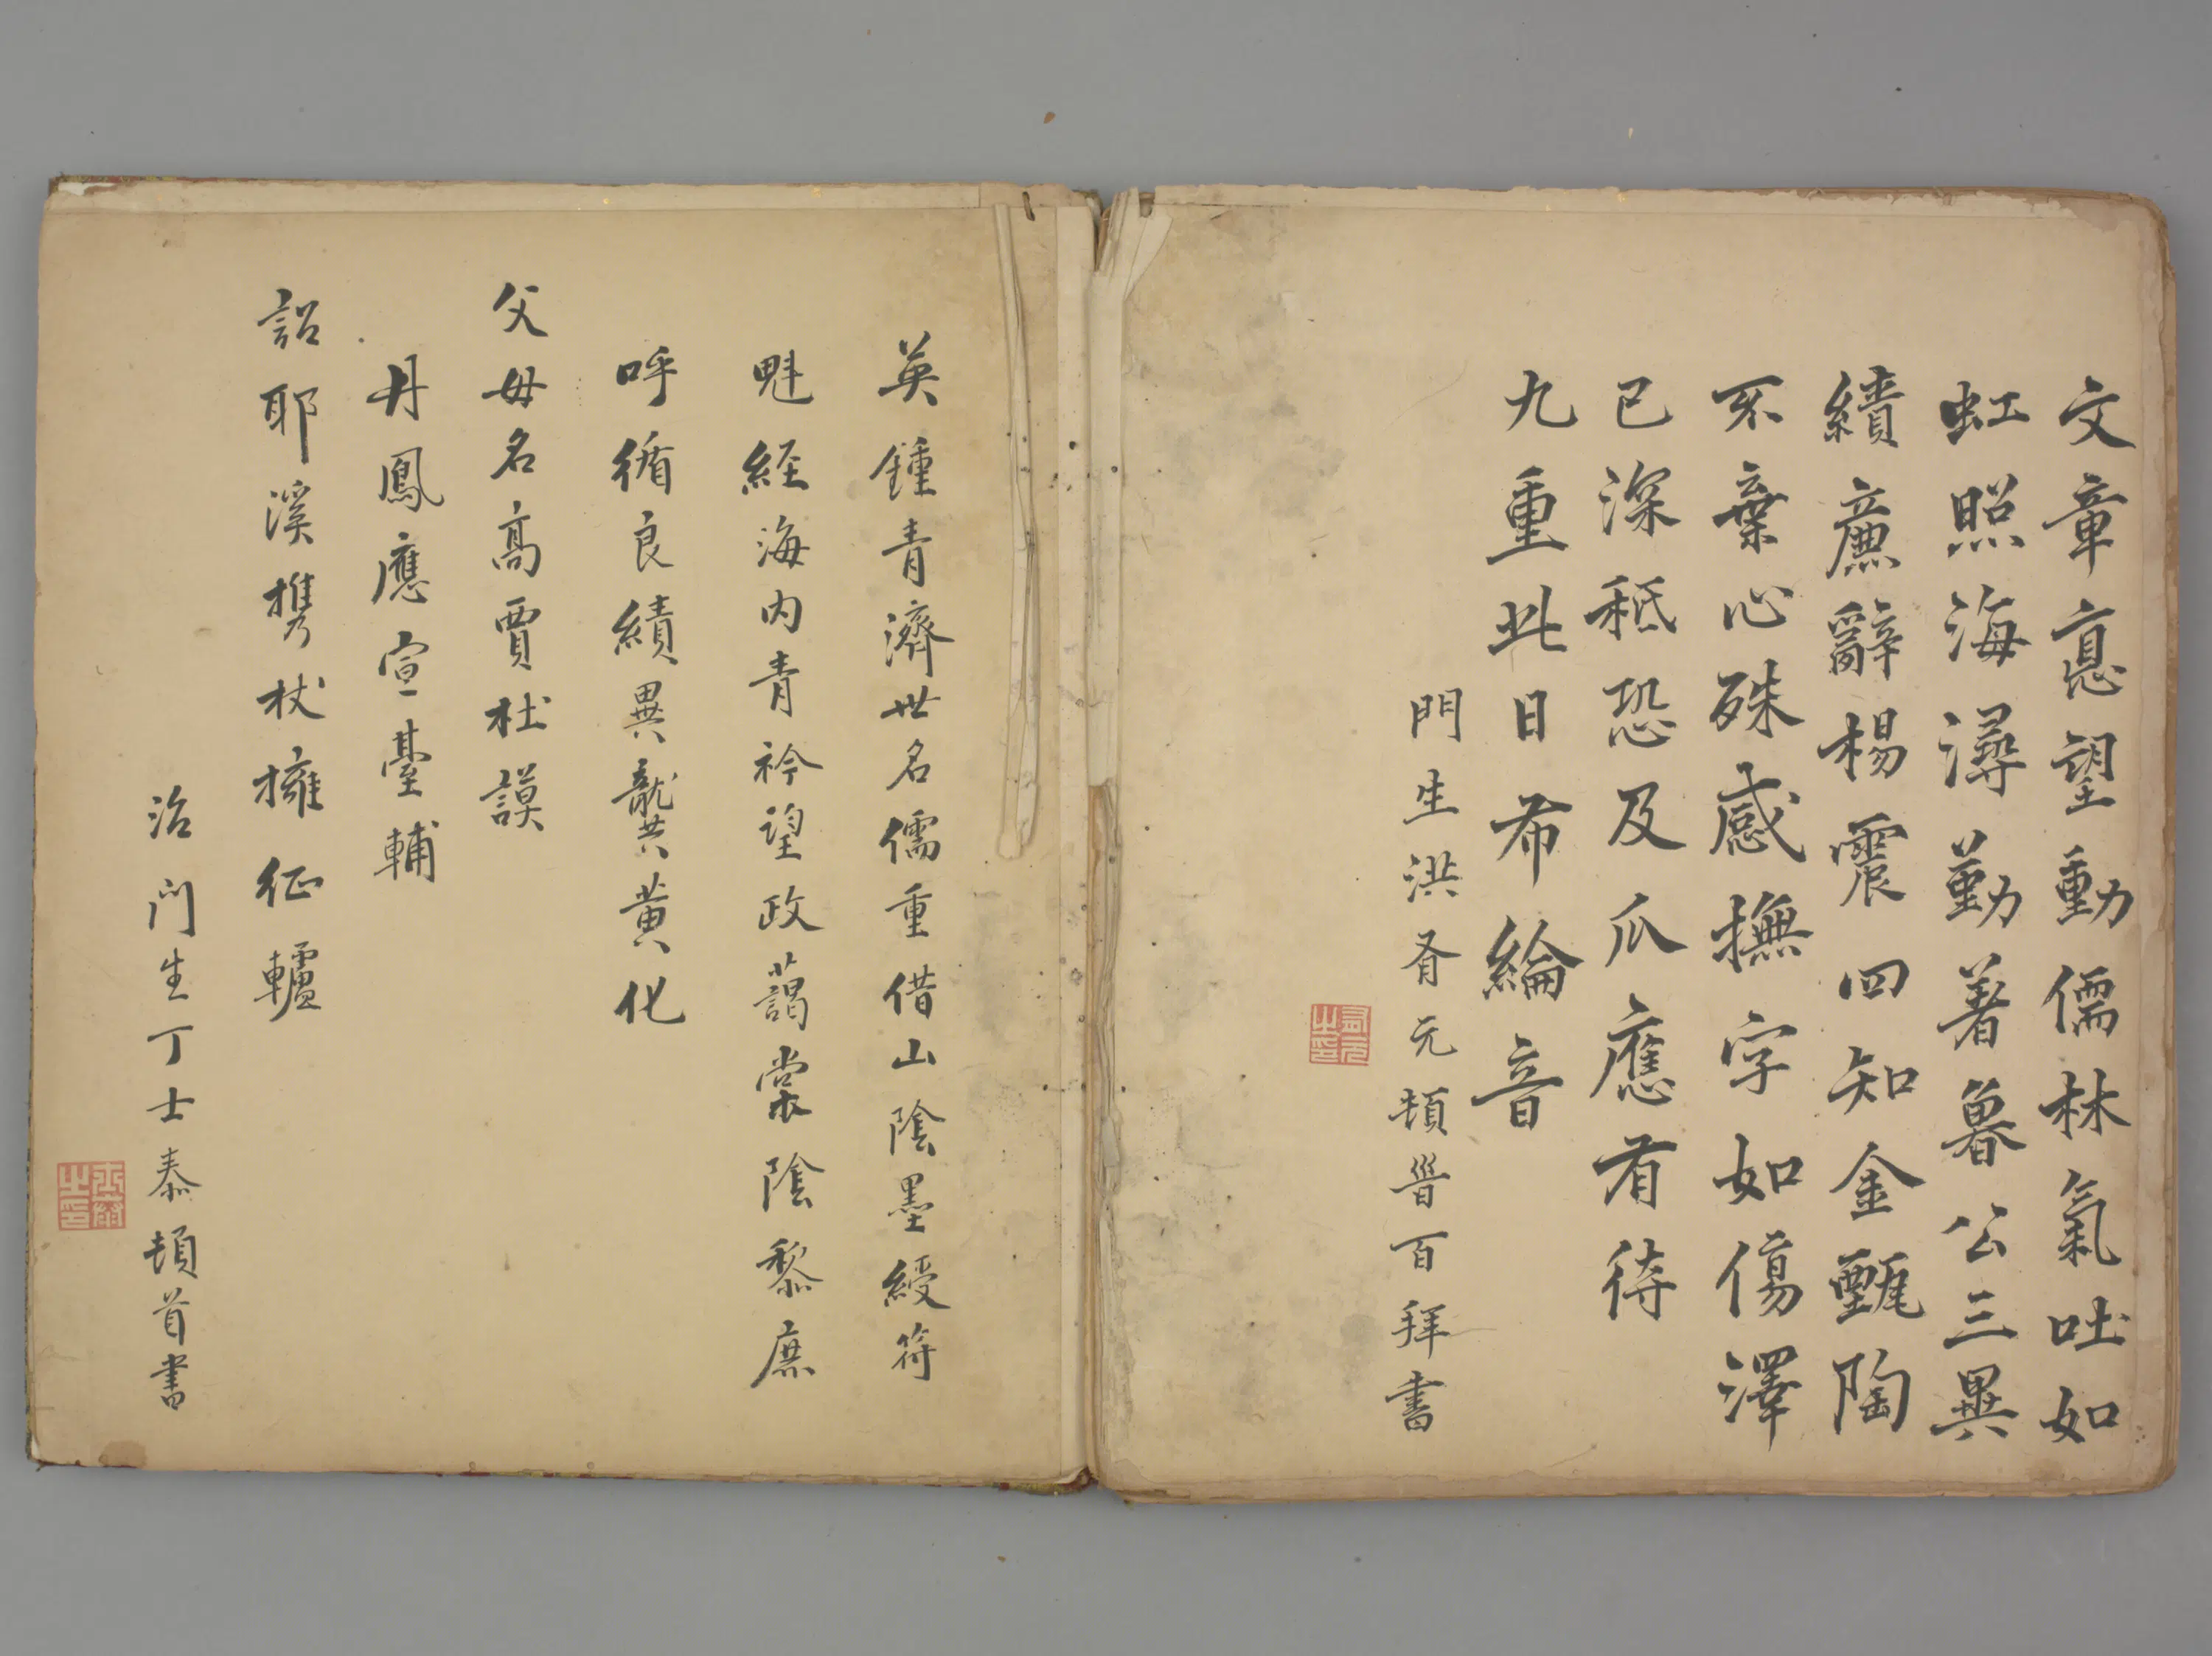 文章悳望動儒林氣吐如
虹照海潯勤著暑公三異
績廉辭楊震四知金甄陶
不棄心殊感撫字如傷澤
已深秪恐及瓜應有待
九重此日希綸音
門生洪胥元頓首百拜書
英鍾青濟世名儒重借山陰墨綬符
魁經海内青衿望政藹棠陰黎庶
呼循良績異龔黄化
父母名高賈杜謨
丹鳳應宣臺輔
詔耶溪携杖擁征轤
治門生丁士泰頓首書